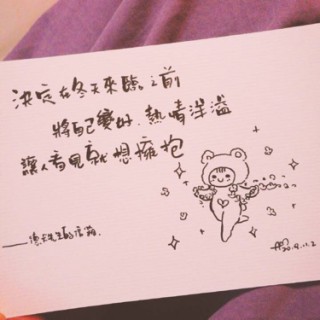 決定在冬天來臨之前
將自己變好.熱情洋溢
讓人看見就想擁抱
2019.11.2